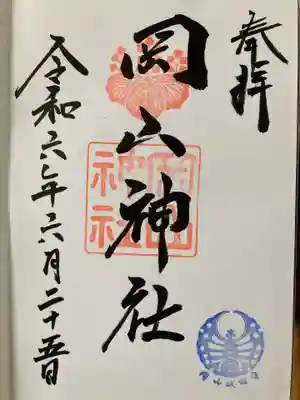 奉拝
岡山神社
岡山
神社
令和六年六月二十五日